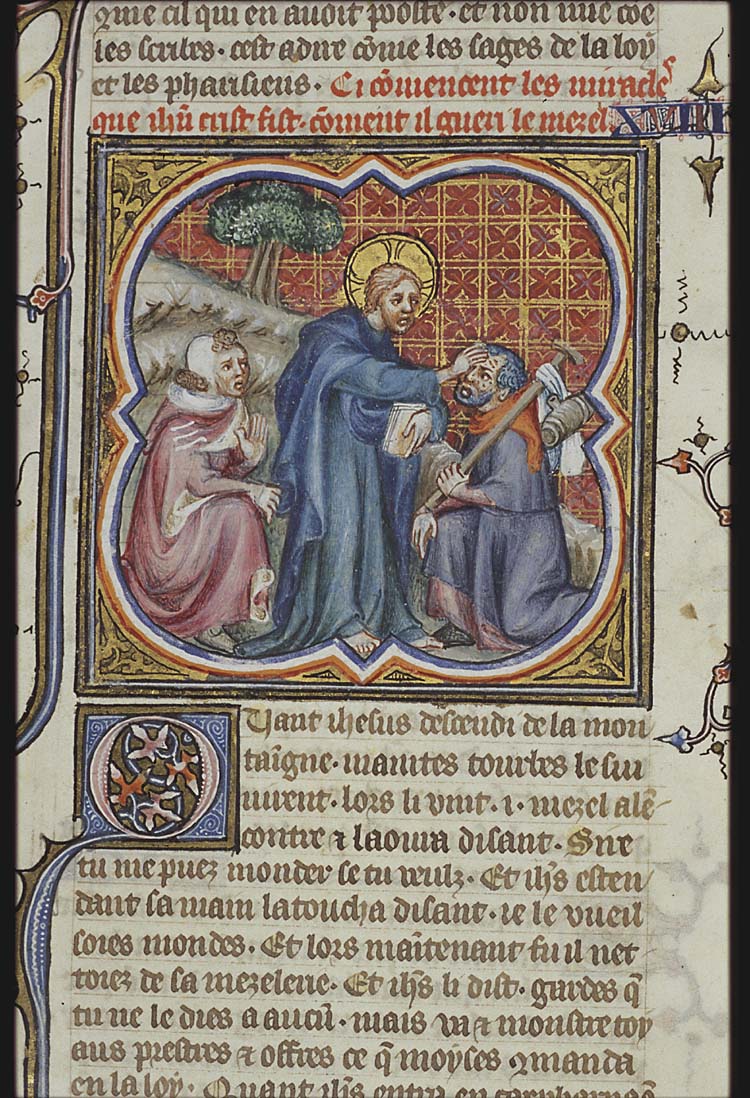 qme cil qui en auoit poste · et non mie cōe
les scribes · cest adire cōme les sages de la loy
et les pharisiens · Ci cōmencent les miracles
que ihū crist fist · cōment il gueri le mezel XVIII
Quant ihesus descendi de la mon
taigne · maintes tourbes le sui
uirent · lors li vint · i · mezel alē
contre ⁊ laoura disant · Sire
tu me puez monder se tu veulz · Et ihs̄ esten
dant sa main latoucha disant · ie le vueil
soies mondes · Et lors maītenant fu il net
toiez de sa mezelerie · Et ihs̄ li dist · gardes q̄
tu ne le dies a aucū · mais va ⁊ monstre toy
aus prestres ⁊ offres ce q̄ moyses ꝯmanda
en la loy · Quant ihs̄ entra en